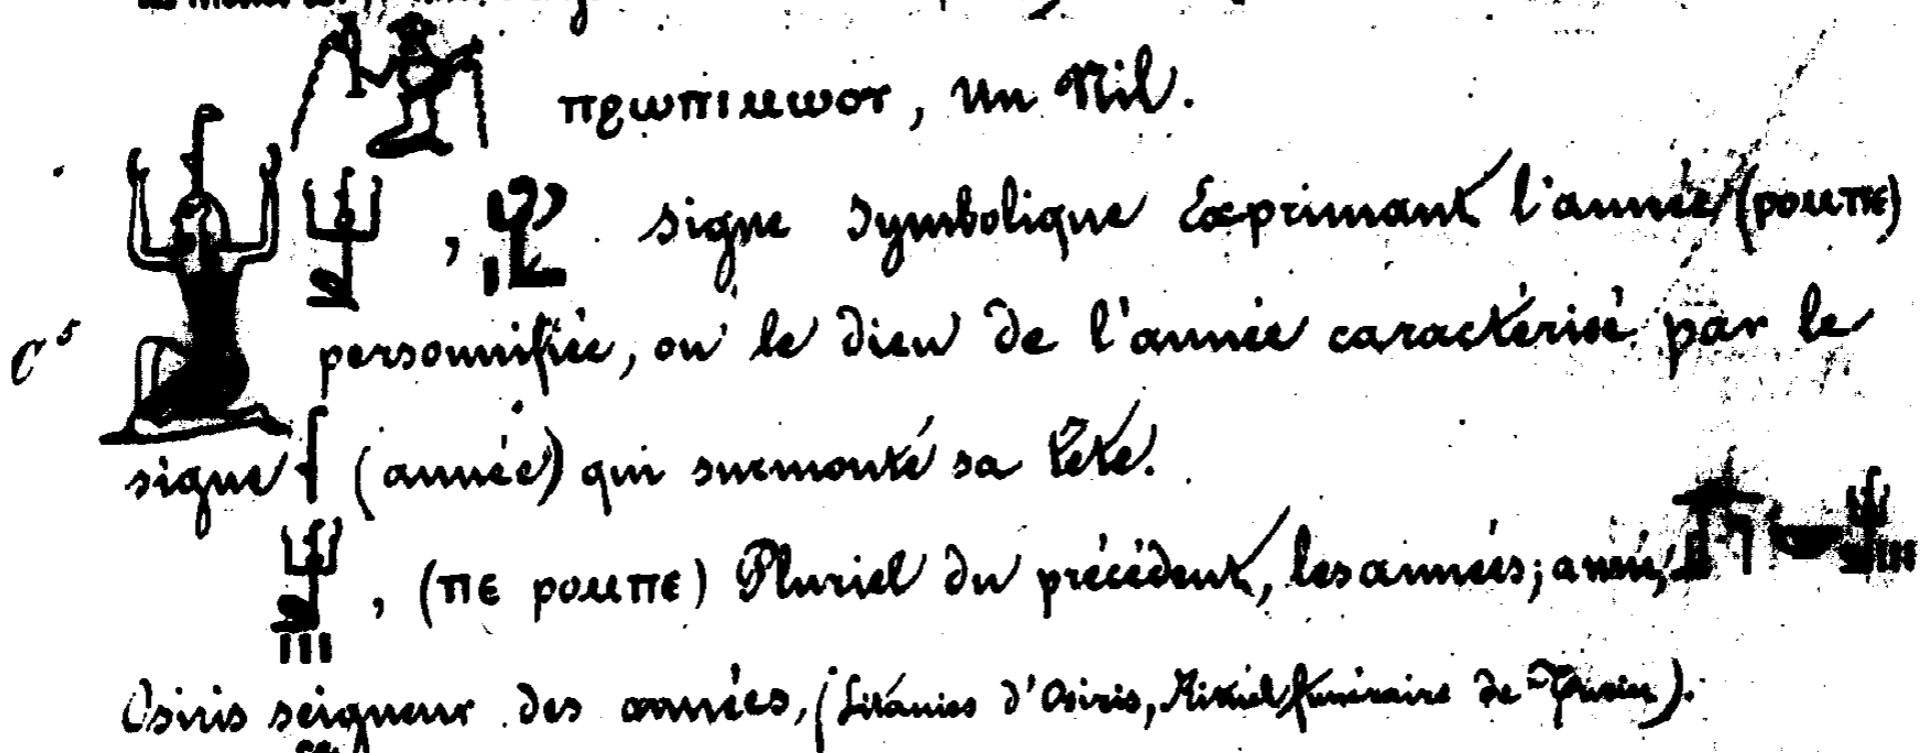 ⲡϩⲱⲡⲓⲙⲱⲟⲩ, un Nil.
, signe symbolique Exprimant l'année (ⲣⲟⲙⲡⲉ)
C⁵ personnifiée, ou le dieu de l'année caractérisé par le
signe (année) qui surmonte sa tête.
, (ⲡⲉ ⲣⲟⲙⲡⲉ) Pluriel du précédent, les années;
Osiris seigneur des années, (Litanies d'Osiris, Rituel funéraire de Turin).